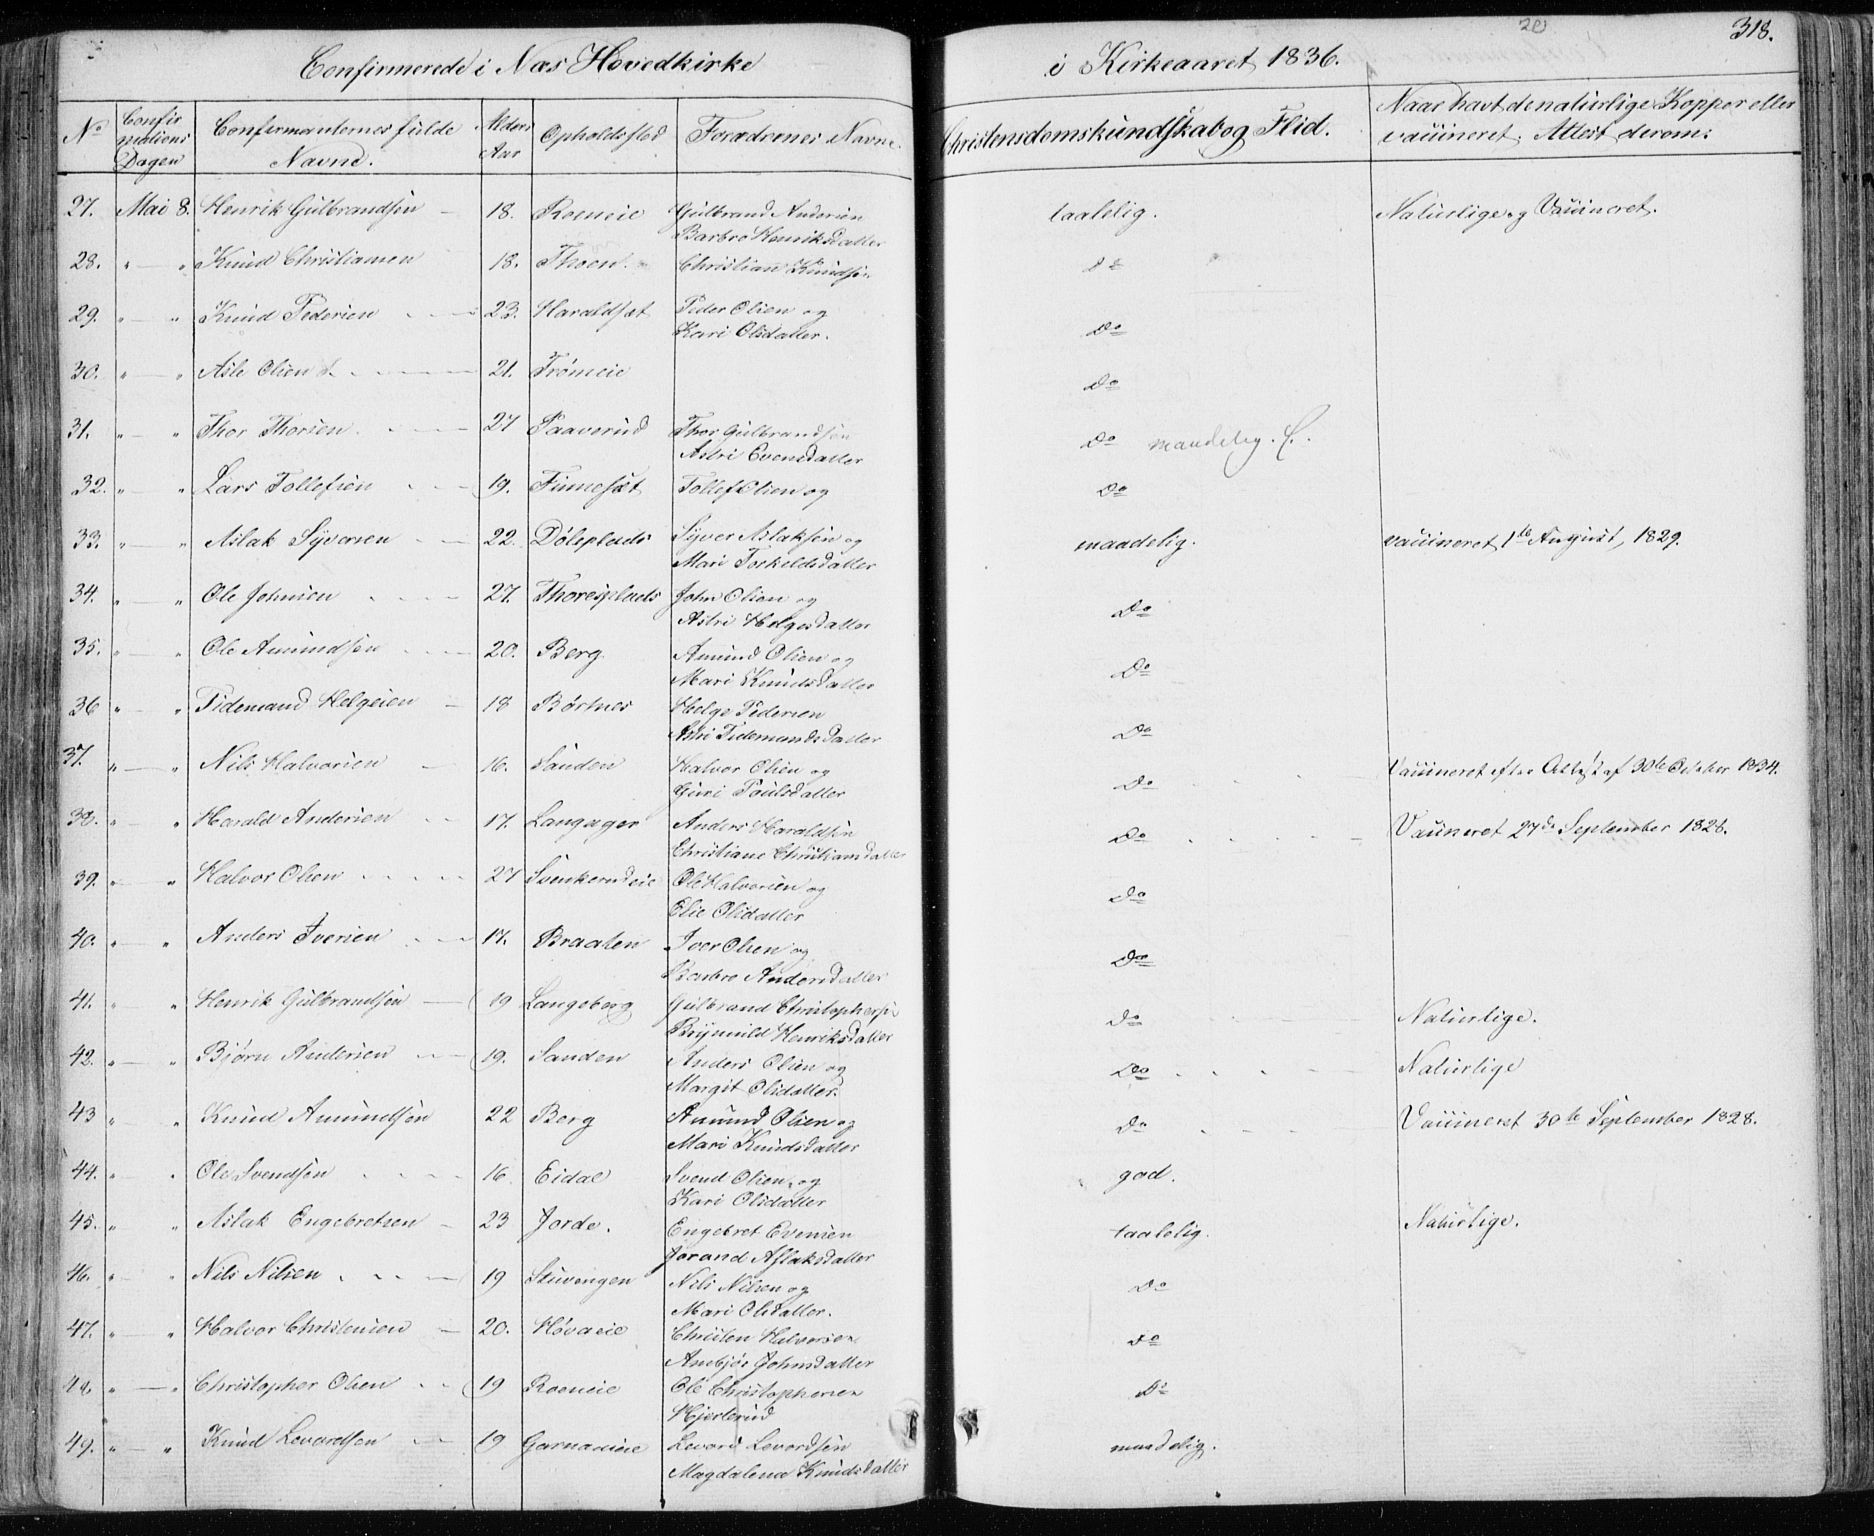 20
318.
Confirmerede i Næs Hovedkirke i Kirkeaaret 1836.
No Confirmations Dagen Confirmanternes fulde Navne. Alders Aar Opholdssted Forældrenes Navne. Christendomskundskab og Flid. Naar havt de naturlige Kopper eller vaccineret. Attest derom:
27. Mai 8. Henrik Gulbrandsen 18. Roeneie Gulbrand Andersen taalelig. Naturlige og Vaccineret.
Barbro Henriksdatter
28. " " Knud Christiansen 18. Thoen. Christian Knudsen do
29. " " Knud Pedersen 23. Haraldset Peder Olsen og Do
Kari Olsdatter.
30. " " Asle Olsen 21. Trømeie Do
31. " " Thor Thorsen 27 Paaverud Thor Gulbrandsen Do maadelig.
Astri Evensdatter
32. " " Lars Tollefsen 19. Finneset Tollef Olsen og Do
33. " " Aslak Syversen 22. Døleplads Syver Aslaksen og maadelig. vaccineret 1te August, 1829.
Mari Torkeldsdatter
34. " " Ole Johnsen 27. Thoresplads John Olsen og Do
Astri Helgesdatter
35. " " Ole Amundsen 20. Berg Amund Olsen og Do
Mari Knudsdatter
36 " " Tidemand Helgesen 18 Børtnes Helge Pedersen Do
Astri Tidemandsdatter
37. " " Nils Halvorsen 16. Sanden Halvor Olsen og Do Vaccineret efter Attest af 30te October 1834.
Guri Paulsdatter
38. " " Harald Andersen 17. Langager Anders Haraldsen Do Vaccineret 27de September 1828.
Christiane Christiansdatter
39. " " Halvor Olsen 27 Svenkerudeie Ole Halvorsen og Do
Elie Olsdatter
40. " " Anders Iversen 17. Braaten Iver Olsen og Do
Barbro Andersdatter
41. " " Henrik Gulbrandsen 19 Langeberg Gulbrand Christophersen Do Naturlige.
Ragnild Henriksdatter
42. " " Bjørn Andersen 19. Sanden Anders Olsen og Do Naturlige
Margit Olsdatter.
43 " " Knud Amundsen 22 Berg Amund Olsen og Do Vaccineret 30te September 1828.
Mari Knudsdatter
44. " " Ole Svendsen 16. Eidal Svend Olsen og god.
Kari Olsdatter
45. " " Aslak Engebretsen 23 Jorde. Engebret Evensen taalelig. Naturlige.
Jorand Aslaksdatter
46. " " Nils Nilsen 19 Stuvengen Nils Nilsen og Do
Mari Olsdatter.
47. " " Halvor Christensen 20. Høvaeie Christen Halvorsen Do
Ambjør Johnsdatter
48. " " Christopher Olsen 19 Roeneie Ole Christophersen Do
Hjerterud
49. " " Knud Levordsen 19 Garnaaseie Levord Levordsen maadelig.
Magdalena Knudsdatter